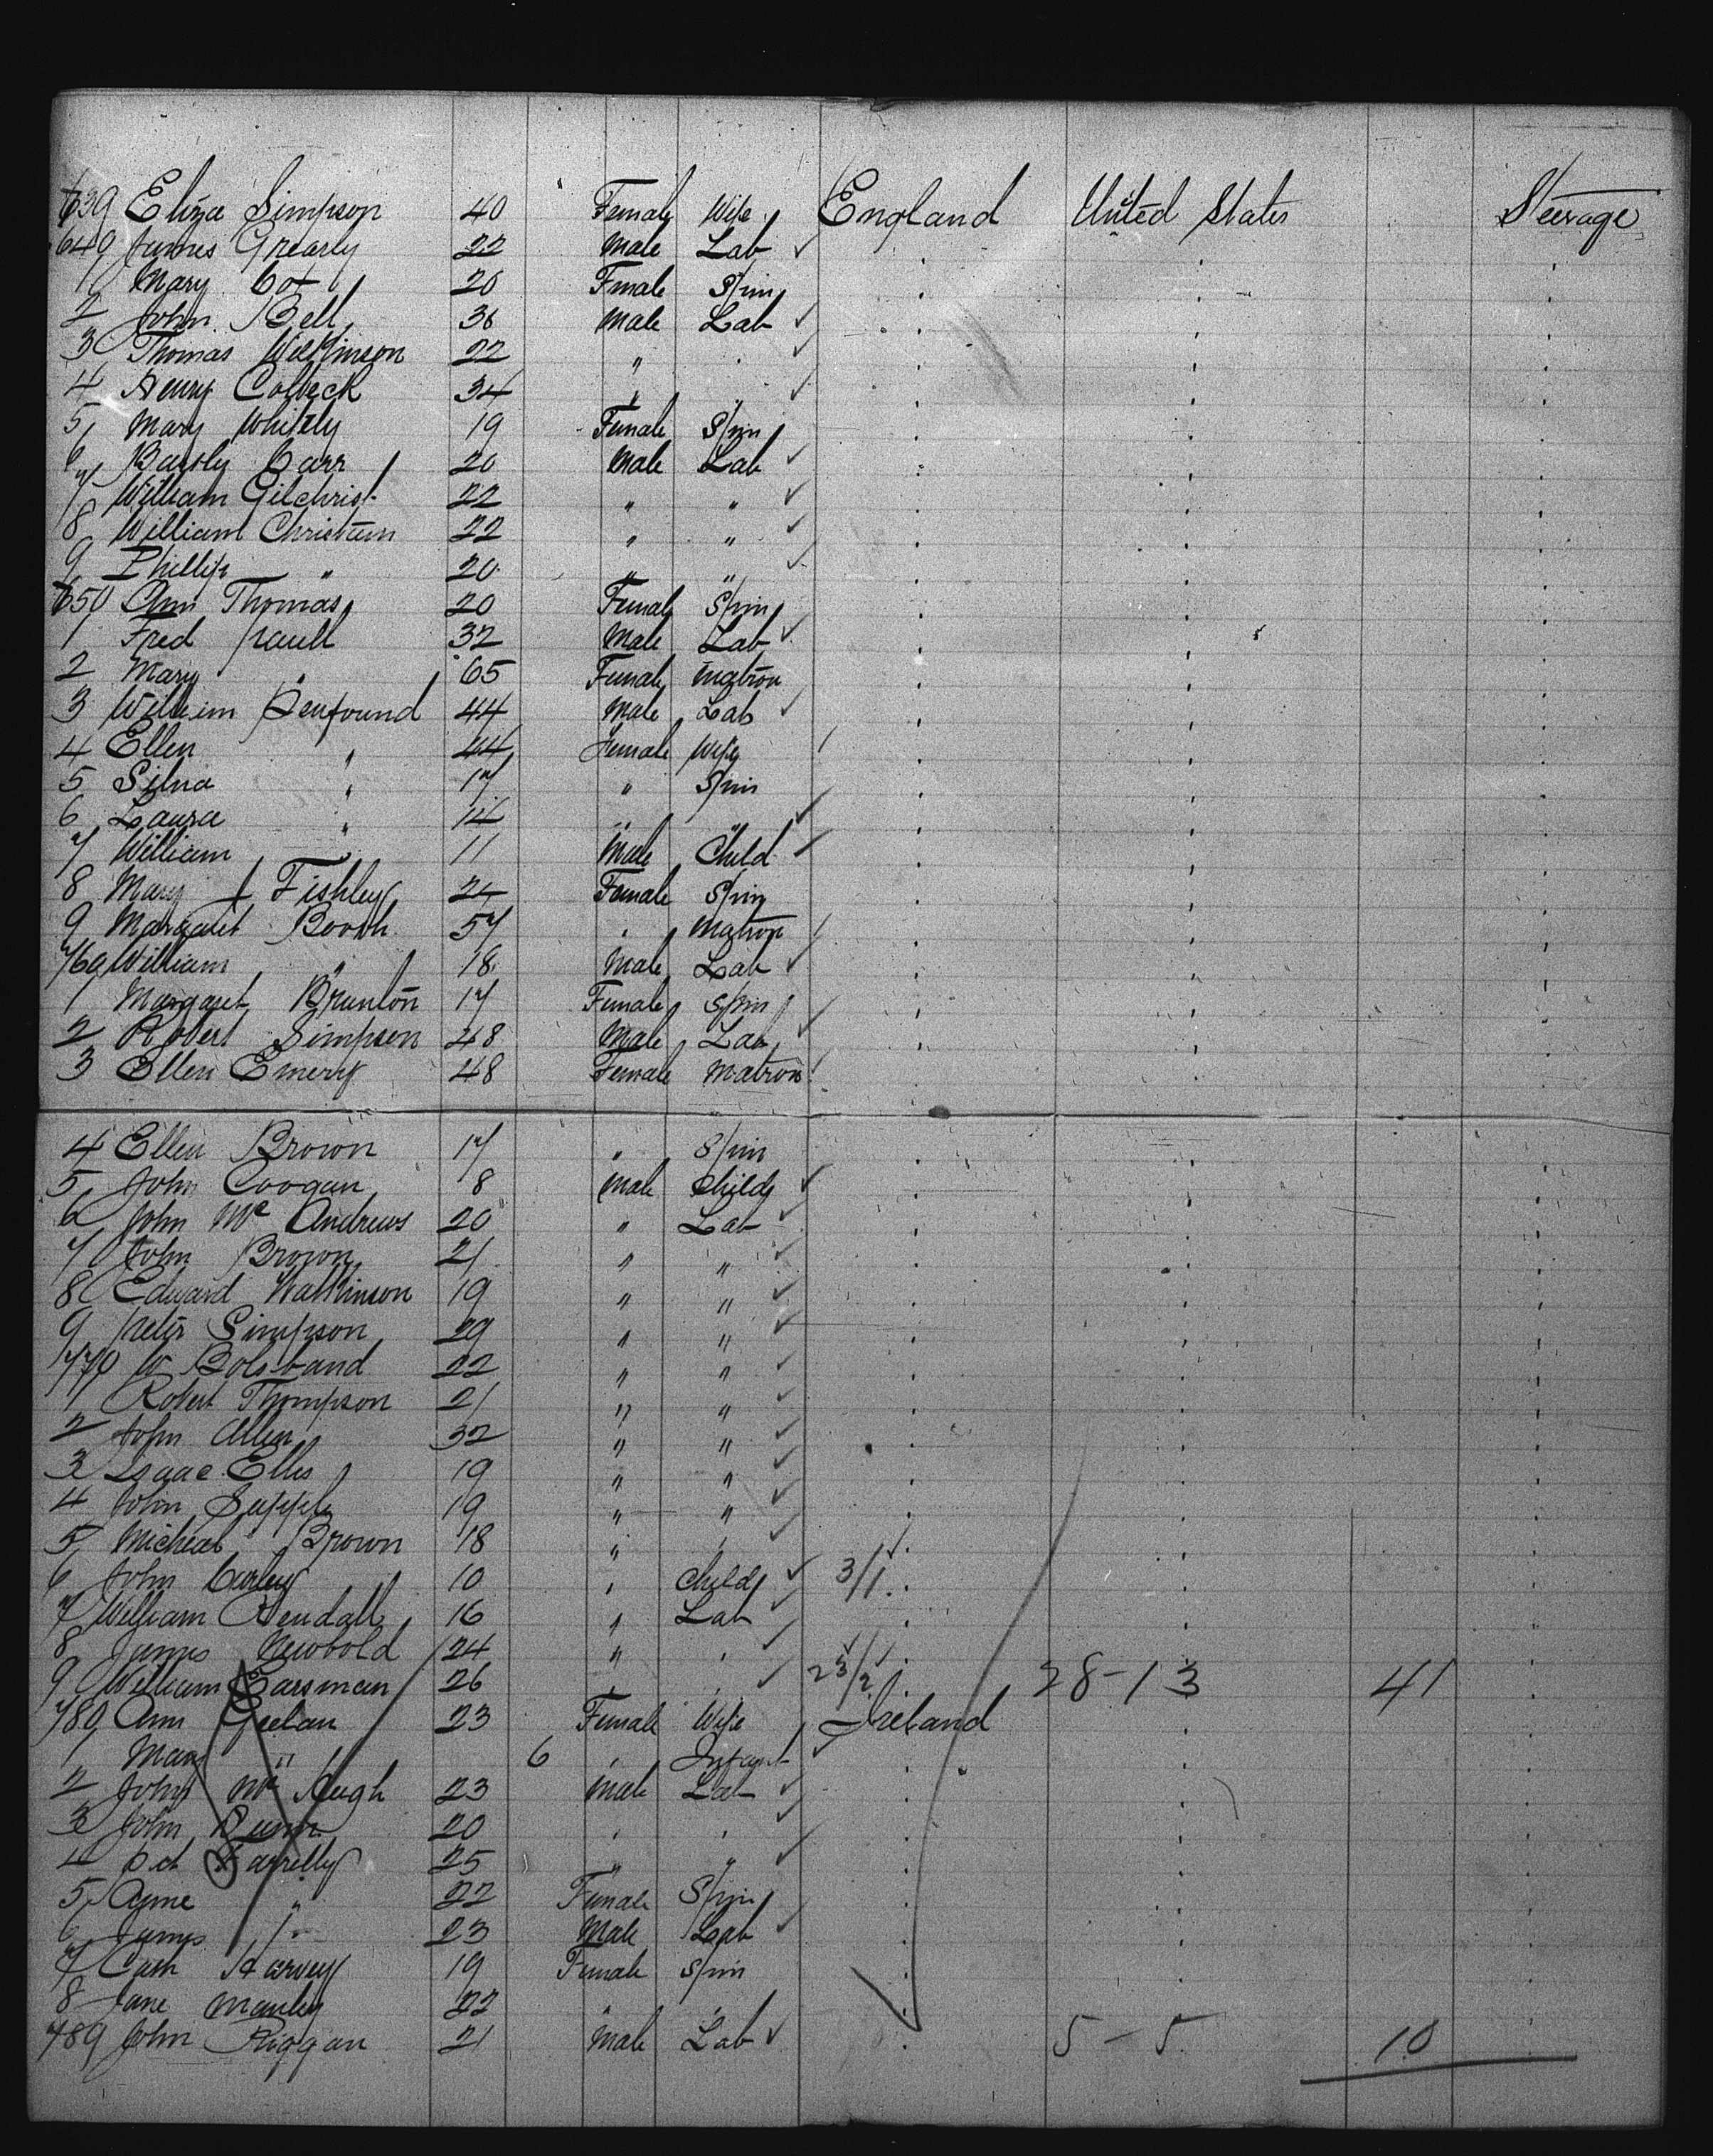 639 Eliza Simpson 40 Female Wife England United States Steerage
640 James Grearly 22 Male Lab ✓
1 Mary Cox 20 Female Spin
2 John Bell 36 Male Lab ✓
3 Thomas Wilkinson 22 " ✓
4 Henry Colbeck 34 " " ✓
5 Mary Whitely 19 Female Spin
6 Bartly Carr 20 Male Lab ✓
7 William Gilchrist 22 " " ✓
8 William Christian 22 " " ✓
9 Phillip " 20 " " ✓
650 Ann Thomas 20 Female Spin
1 Fred 32 Male Lab ✓
2 Mary " 65 Female Matron
3 William Penfound 44 Male Lab ✓
4 Ellen " 44 Female Wife
5 Silna " 17 " Spin
6 Laura " 14 " " ✓
7 William " 11 Male Child ✓
8 Mary J Fishley 24 Female Spin
9 Margaret Booth 57 " Matron
760 William " 18 Male Lab ✓
1 Margaret Brunton 17 Female Spin
2 Robert Simpson 48 Male Lab ✓
3 Ellen Emery 48 Female Matron
4 Ellen Brown 17 " Spin
5 John Coogan 8 Male Child ✓
6 John Mc Andrews 20 " Lab ✓
7 John Brown 21 " " ✓
8 Edward Watkinson 19 " " ✓
9 Peter Simpson 29 " " ✓
770 W 22 " " ✓
1 Robert Thompson 21 " " ✓
2 John Allen 32 " " ✓
3 Isaac Ellis 19 " " ✓
4 John Supple 19 " " ✓
5 Micheal Brown 18 " " ✓
6 John Curley 10 " Child ✓ 3/1
7 William Kendall 16 " Lab ✓
8 James Newbold 24 " " ✓
9 William 26 " " ✓ 28-13 41
780 Ann Geelan 23 Female Wife Ireland
1 Mary " 6 " Infant ✓
2 John Mc Hugh 23 Male Lab ✓
3 John 20 " "
4 Pat Farrelly 25 " " ✓
5 Anne " 22 Female Spin
6 James " 23 Male Lab ✓
7 Cath Harvey 19 Female Spin
8 Jane Manley 22 " "
789 John Riggan 21 Male Lab ✓ 5-5 10